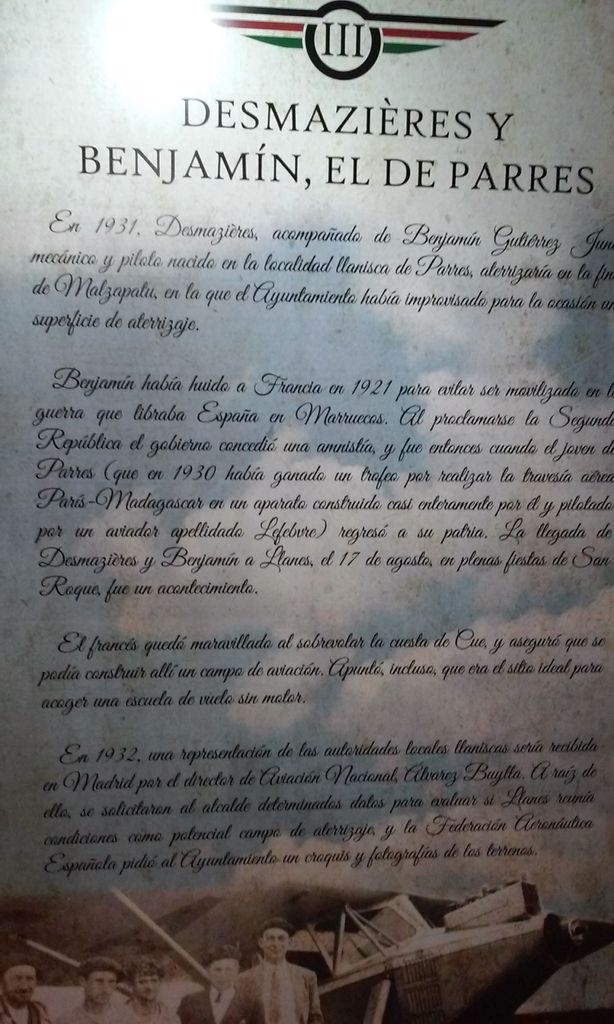 III
DESMAZIÈRES Y
BENJAMÍN, EL DE PARRES
En 1931, Desmazières, acompañado de Benjamín Gutiérrez
mecánico y piloto nacido en la localidad llanisca de Parres, aterrizaría en la
de Malzapatu, en la que el Ayuntamiento había improvisado para la ocasión
superficie de aterrizaje.
Benjamín había huido a Francia en 1921 para evitar ser movilizado en
guerra que libraba España en Marruecos. Al proclamarse la Segunda
República el gobierno concedió una amnistía, y fue entonces cuando el joven de
Parres (que en 1930 había ganado un trofeo por realizar la travesía aérea
París-Madagascar en un aparato construido casi enteramente por él y pilotado
por un aviador apellidado Lefebvre) regresó a su patria. La llegada de
Desmazières y Benjamín a Llanes, el 17 de agosto, en plenas fiestas de San
Roque, fue un acontecimiento.
El francés quedó maravillado al sobrevolar la cuesta de Cue, y aseguró que se
podía construir allí un campo de aviación. Apuntó, incluso, que era el sitio ideal para
acoger una escuela de vuelo sin motor.
En 1932, una representación de las autoridades locales llaniscas sería recibida
en Madrid por el director de Aviación Nacional, Álvarez Buylla. A raíz de
ello, se solicitaron al alcalde determinados datos para evaluar si Llanes reunía
condiciones como potencial campo de aterrizaje, y la Federación Aeronáutica
Española pidió al Ayuntamiento un croquis y fotografías de los terrenos.